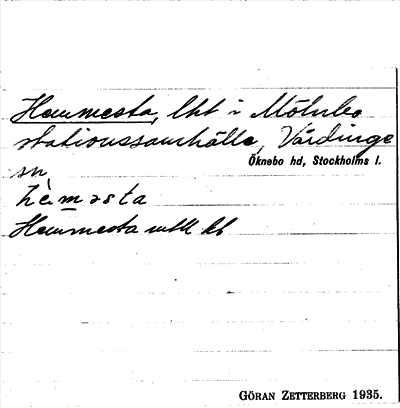 Hemmesta, lht i Mölnbo
stationssamhälle, Vårdinge
Öknebo hd, Stockholms l.
sn
hèmǝsta
Hemmesta mtlk kb
GÖRAN ZETTERBERG 1935.